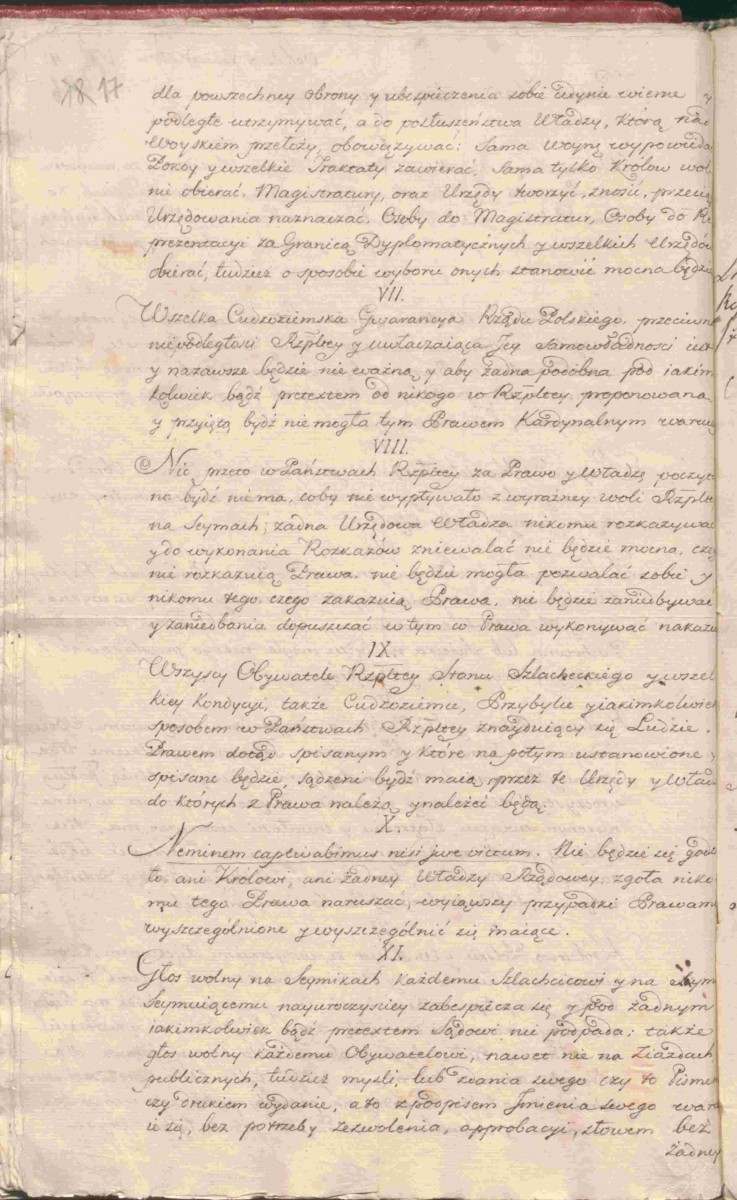 18 17
dla powszechney obrony y ubespieczenia sobie iedynie wierne y
podległe utrzymywać, a do posłuszeństwa Władzy, którą nad
Woyskiem przełoży, obowiązywać: Sama Woynę wypowieda
Pokoy y wszelkie Traktaty zawierać, Sama tylko Królow wol
nie obierać, Magistratury, oraz Urzędy tworzyć, znosić, przeciąg
Urzędowania naznaczać, Osoby do Magistratur, Osoby do Re
prezentacyi za Granicą Dyplomatycznych y wszelkich Urzędów
obierać, tudzież o sposobie wyboru onych stanowić mocna będzie
VII.
Wszelka Cudzoziemska Gwarancya Rządu Polskiego, przeciwna
niepodległości Rzpltey y uwłaczaiąca Jey Samowładności iest
y nazawsze będzie nie ważną, y aby żadna podobna pod iakim
kolwiek bądź pretextem od nikogo w Rzpltey proponowana
y przyiętą bydź nie mogła tym Prawem Kardynalnym waruie
VIII.
Nic przeto w Państwach Rzpltey za Prawo y Władzę poczyta
no bydź nie ma, coby nie wypływało z wyraźney woli Rzpltey
na Seymach; żadna Urzędowa Władza nikomu rozkazywać
y do wykonania Rozkazów zniewalać nie będzie mocna, czego
nie rozkazuią Prawa, nie będzie mogła pozwalać sobie y
nikomu tego, czego zakazuią Prawa, nie będzie zaniedbywać
y zaniedbania dopuszczać w tym co Prawa wykonywać nakazu
IX.
Wszyscy Obywatele Rzpltey Stanu Szlacheckiego y wszel
kiey Kondycyi, także Cudzoziemcy, Przybylce y iakimkolwiek
sposobem w Państwach Rzpltey znayduiący się Ludzie,
Prawem dotąd spisanym y które na potym ustanowione y
spisane będzie, sądzeni bydź maią przez te Urzędy y Wład
do których z Prawa należą y należeć będą.
X.
Neminem captivabimus nisi jure victum. Nie będzie się godzi
ło, ani Królowi, ani żadney Władzy Rządowey, zgoła niko
mu tego Prawa naruszać, wyiąwszy przypadki Prawami
wyszczególnione y wyszczególnić się maiące.
XI.
Głos wolny na Seymikach każdemu Szlachcicowi y na Seym
Seymuiącemu nayuroczyściey zabespiecza się y pod żadnym
iakimkolwiek bądź pretextem Sądowi nie podpada; także
głos wolny każdemu Obywatelowi, nawet nie na Ziazdach
publicznych, tudzież myśli, lub zdania swego czy to Pismem
czy drukiem wydanie, a to z podpisem Jmienia swego waru
ie się, bez potrzeby zezwolenia, approbacyi, słowem bez
żadney